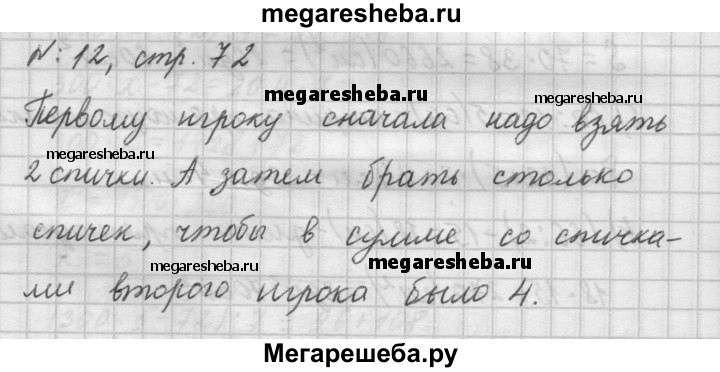 megaresheba.ru
№: 12, стр. 72
megaresheba.ru
megaresheba.ru
Первому игроку сначала надо взять
megaresheba.ru
2 спички. А затем брать столько
спичек, чтобы в сумме со спичка-
megaresheba.ru
megaresheba.ru
ми второго игрока было 4.
Мегарешеба.ру